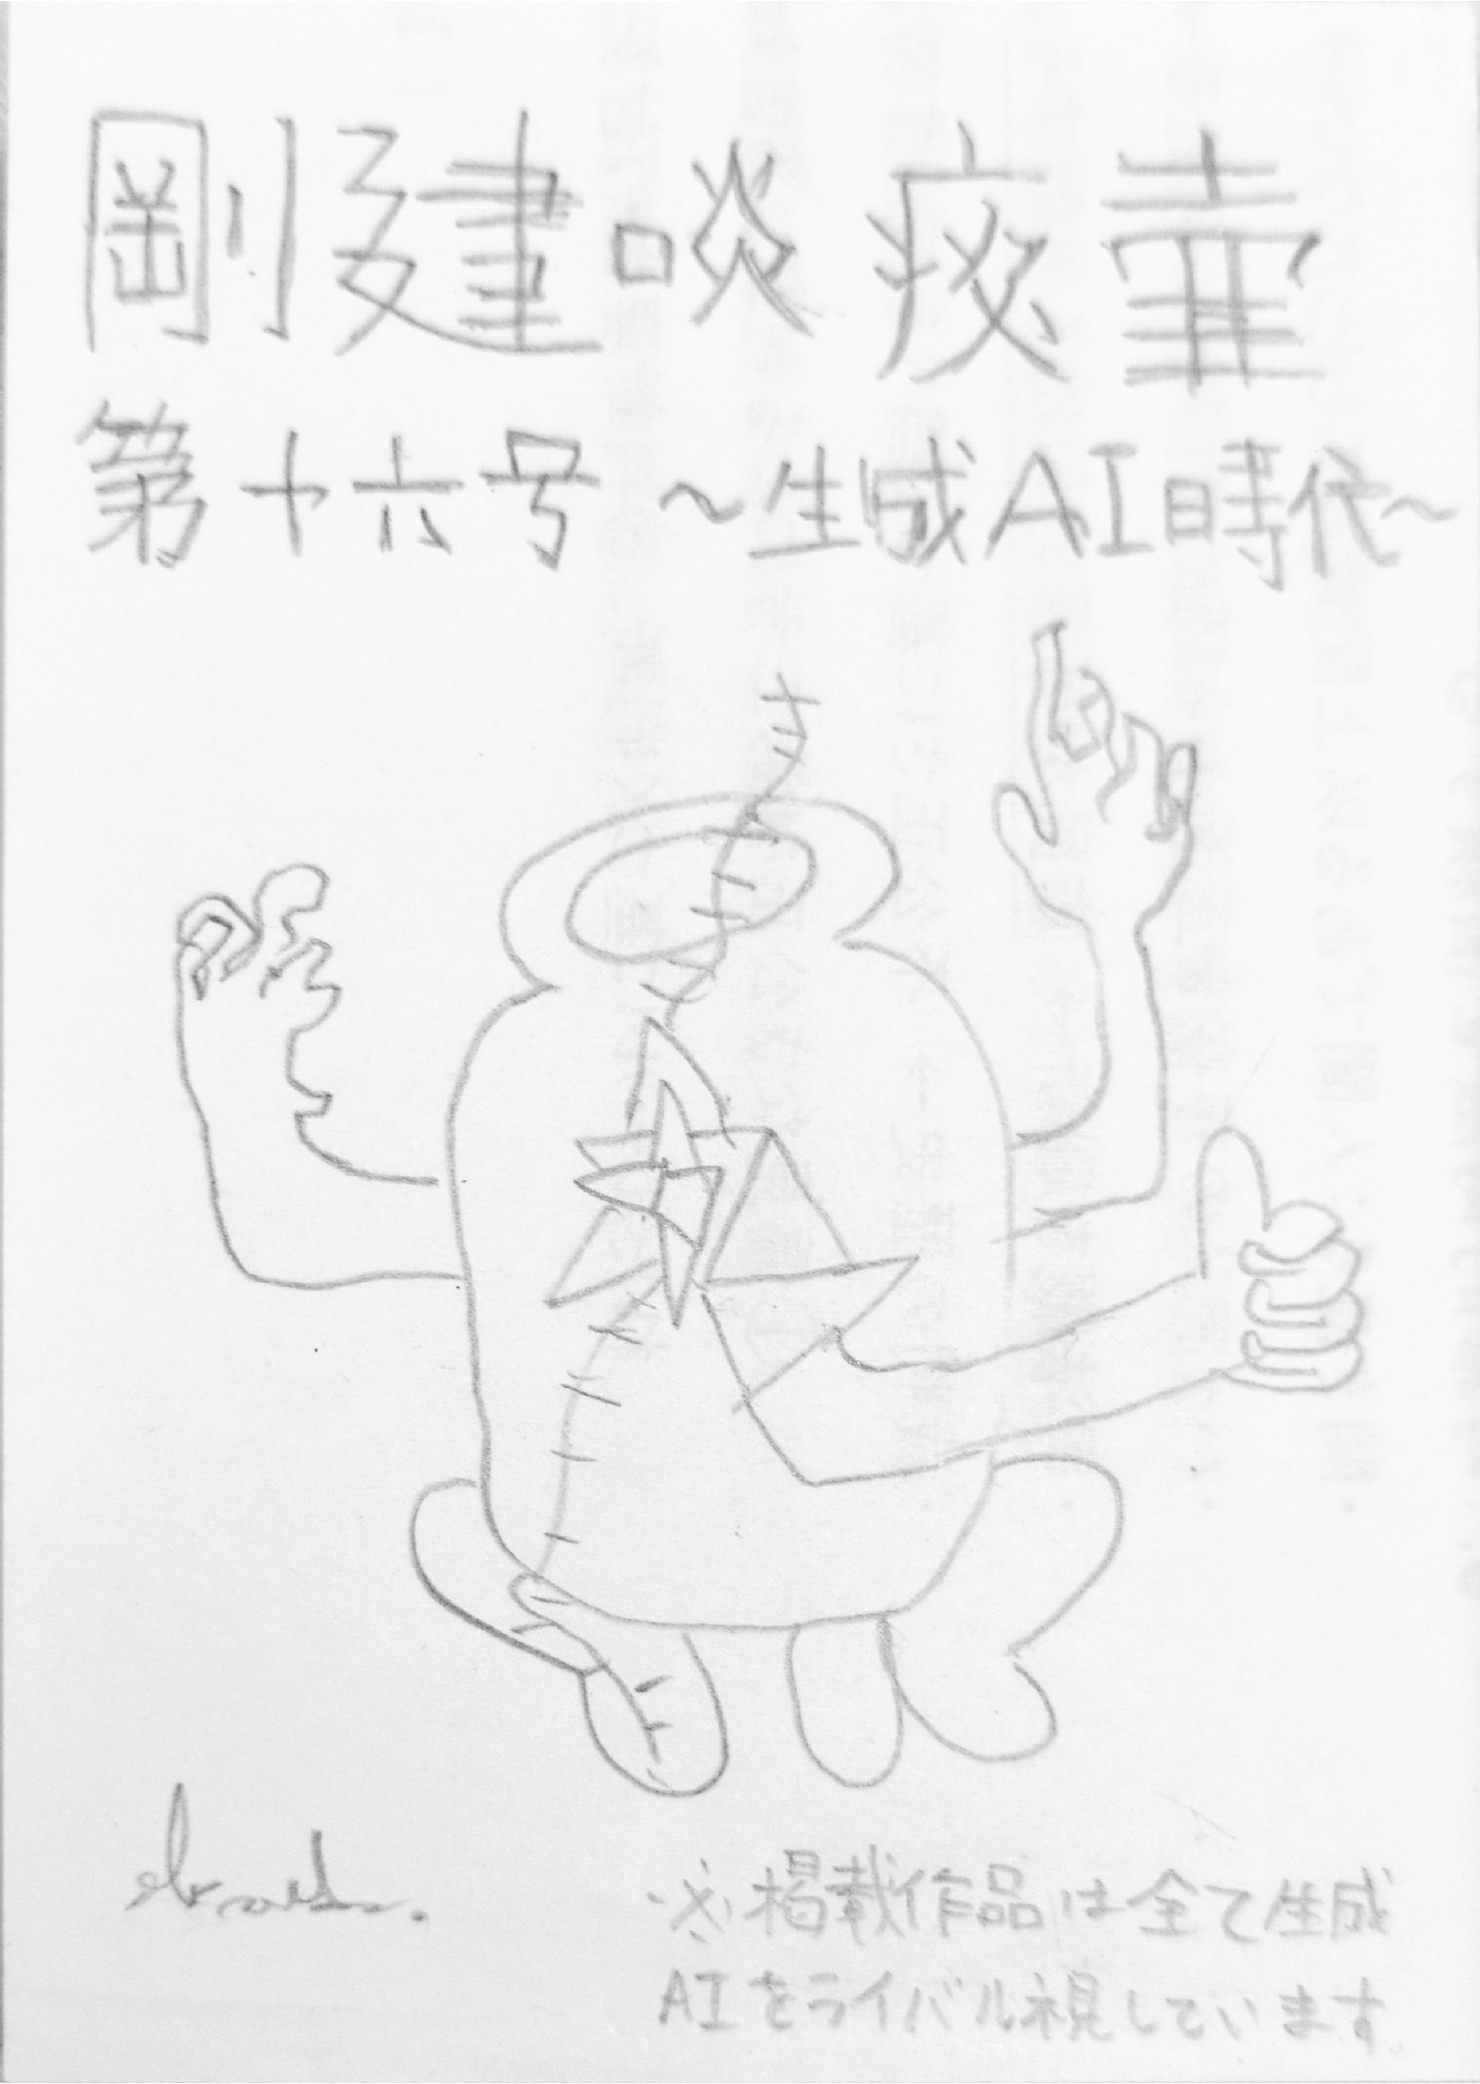 剛建啖痰壷
第十六号 ～生成AI時代～
※掲載作品は全て生成
AIをライバル視しています